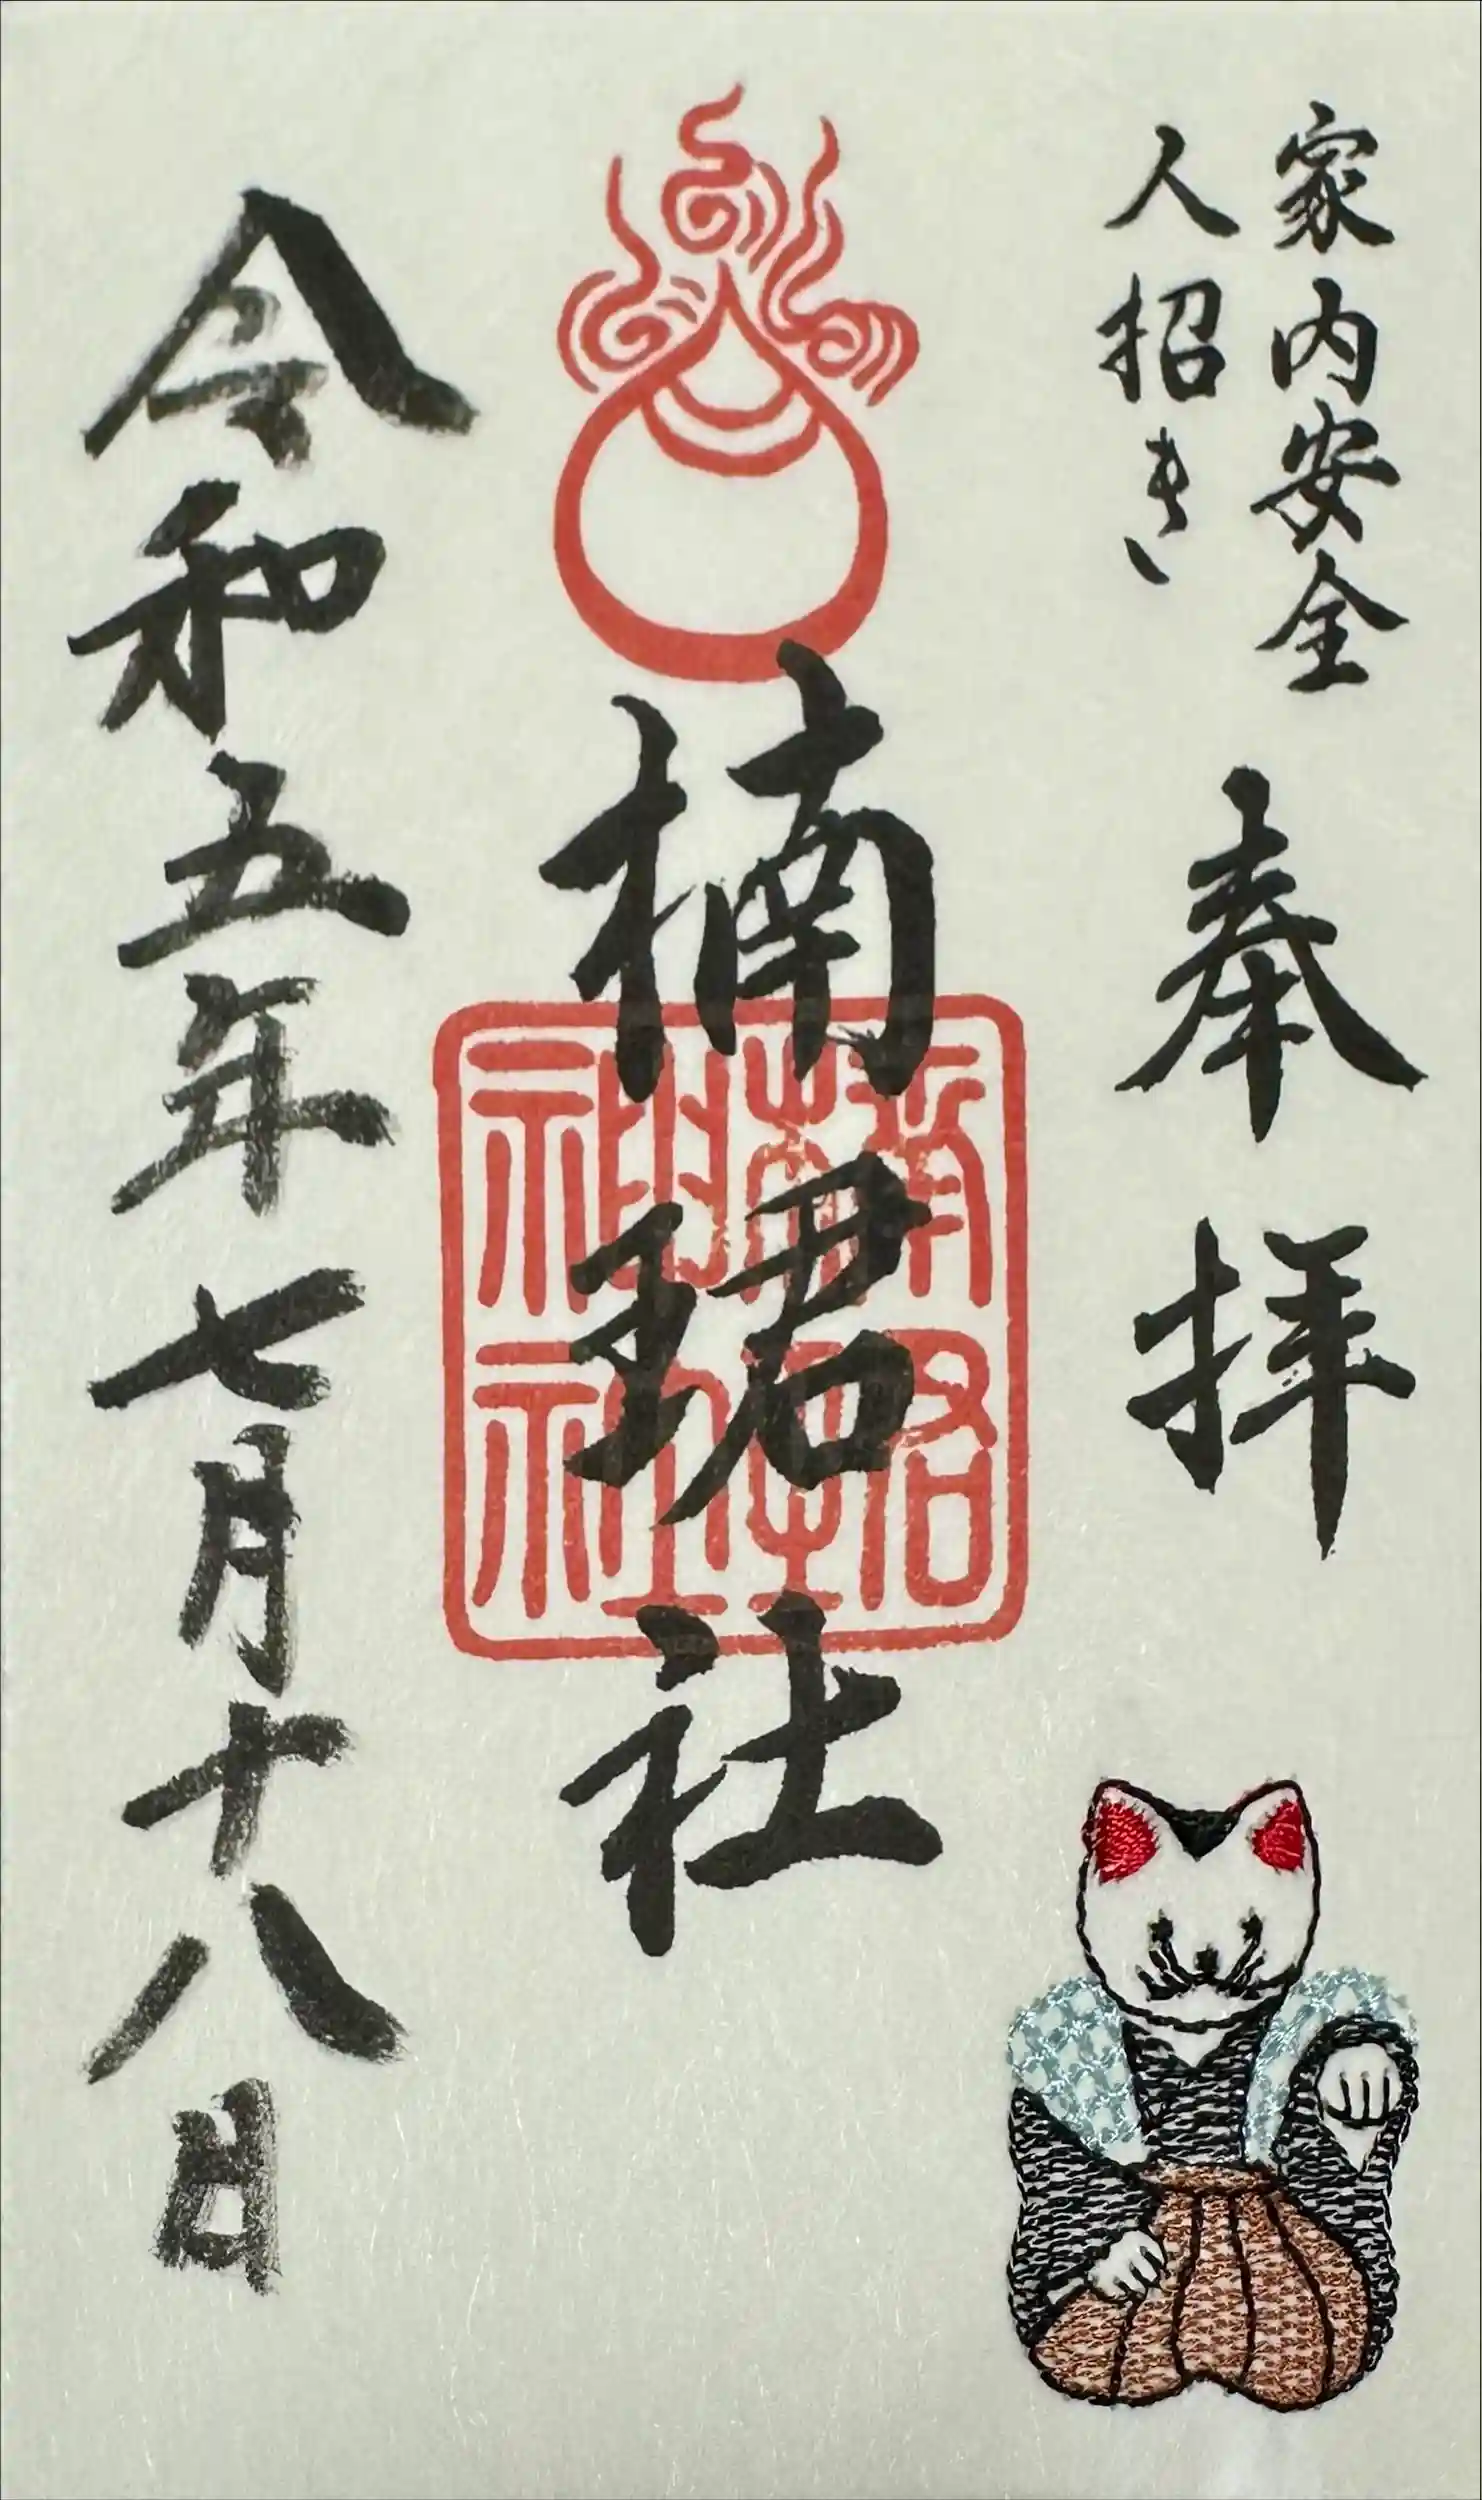 家内安全
人招き
奉拝
楠珺社
楠珺
神社
令和五年七月十八日